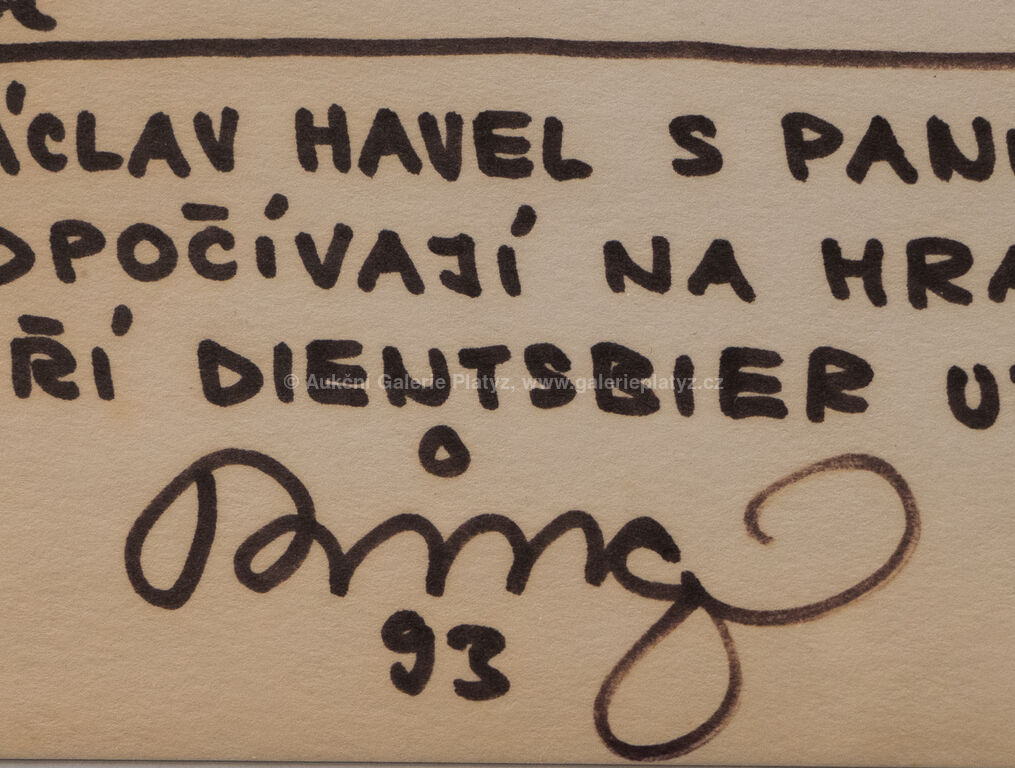 ÁCLAV HAVEL S PAN
DPOČÍVAJÍ NA HRA
ŘÍ DIENTSBIER U
© Aukční Galerie Platýz, www.galerieplatyz.cz
93